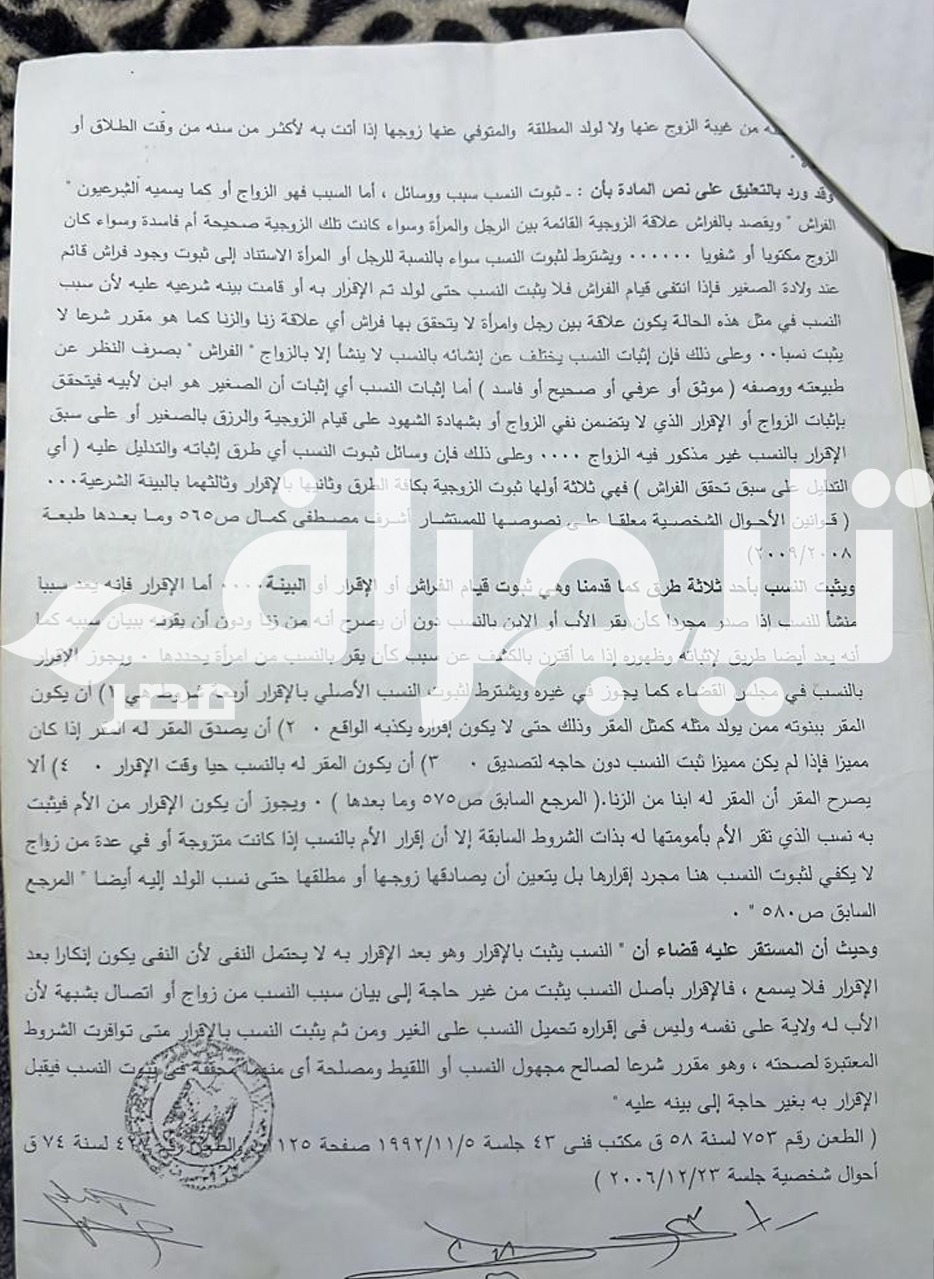 من غيبة الزوج عنها ولا لولد المطلقة والمتوفي عنها زوجها إذا أتت به لأكثر من سنه من وقت الطلاق أو
وقد ورد بالتعليق على نص المادة بأن : ـ ثبوت النسب سبب ووسائل ، أما السبب فهو الزواج أو كما يسميه الشرعيون "
الفراش " ويقصد بالفراش علاقة الزوجية القائمة بين الرجل والمرأة وسواء كانت تلك الزوجية صحيحة أم فاسدة وسواء كان
الزوج مكتوبا أو شفويا ٠٠٠٠٠٠ ويشترط لثبوت النسب سواء بالنسبة للرجل أو المرأة الاستناد إلى ثبوت وجود فراش قائم
عند ولادة الصغير فإذا انتفى قيام الفراش فلا يثبت النسب حتى لولد تم الإقرار به أو قامت بينه شرعيه عليه لأن سبب
النسب في مثل هذه الحالة يكون علاقة بين رجل وامرأة لا يتحقق بها فراش أي علاقة زنا والزنا كما هو مقرر شرعا لا
يثبت نسبا٠٠ وعلى ذلك فإن إثبات النسب يختلف عن إنشائه بالنسب لا ينشأ إلا بالزواج " الفراش " بصرف النظر عن
طبيعته ووصفه ( موثق أو عرفي أو صحيح أو فاسد ) أما إثبات النسب أي إثبات أن الصغير هو ابن لأبيه فيتحقق
بإثبات الزواج أو الإقرار الذي لا يتضمن نفي الزواج أو بشهادة الشهود على قيام الزوجية والرزق بالصغير أو على سبق
الإقرار بالنسب غير مذكور فيه الزواج ٠٠٠٠ وعلى ذلك فإن وسائل ثبوت النسب أي طرق إثباته والتدليل عليه ( أي
التدليل على سبق تحقق الفراش ) فهي ثلاثة أولها ثبوت الزوجية بكافة الطرق وثانيها بالإقرار وثالثهما بالبينة الشرعية٠٠٠
( قوانين الأحوال الشخصية معلقا على نصوصها للمستشار أشرف مصطفى كمال ص٥٦٥ وما بعدها طبعة
٢٠٠٩/٢٠٠٨)
ويثبت النسب بأحد ثلاثة طرق كما قدمنا وهي ثبوت قيام الفراش أو الإقرار أو البينة٠٠٠٠ أما الإقرار فإنه يعد سببا
منشأ للنسب إذا صدر مجردا كأن يقر الأب أو الابن بالنسب دون أن يصرح أنه من زنا ودون أن يقرنه ببيان سببه كما
أنه يعد أيضا طريق لإثباته وظهوره إذا ما أقترن بالكشف عن سبب كأن يقر بالنسب من امرأة يحددها ٠ ويجوز الإقرار
بالنسب في مجلس القضاء كما يجوز في غيره ويشترط لثبوت النسب الأصلي بالإقرار أربعة شروط هي ١) أن يكون
المقر ببنوته ممن يولد مثله كمثل المقر وذلك حتى لا يكون إقراره يكذبه الواقع ٠ ٢) أن يصدق المقر له المقر إذا كان
مميزا فإذا لم يكن مميزا ثبت النسب دون حاجه لتصديق ٠ ٣) أن يكون المقر له بالنسب حيا وقت الإقرار ٠ ٤) ألا
يصرح المقر أن المقر له ابنا من الزنا.( المرجع السابق ص٥٧٥ وما بعدها ) ٠ ويجوز أن يكون الإقرار من الأم فيثبت
به نسب الذي تقر الأم بأمومتها له بذات الشروط السابقة إلا أن إقرار الأم بالنسب إذا كانت متزوجة أو في عدة من زواج
لا يكفي لثبوت النسب هنا مجرد إقرارها بل يتعين أن يصادقها زوجها أو مطلقها حتى نسب الولد إليه أيضا " المرجع
السابق ص٥٨٠ " ٠
وحيث أن المستقر عليه قضاء أن " النسب يثبت بالإقرار وهو بعد الإقرار به لا يحتمل النفى لأن النفى يكون إنكارا بعد
الإقرار فلا يسمع ، فالإقرار بأصل النسب يثبت من غير حاجة إلى بيان سبب النسب من زواج أو اتصال بشبهة لأن
الأب له ولاية على نفسه وليس فى إقراره تحميل النسب على الغير ومن ثم يثبت النسب بالإقرار متى توافرت الشروط
المعتبرة لصحته ، وهو مقرر شرعا لصالح مجهول النسب أو اللقيط ومصلحة أى منهما محققة فى ثبوت النسب فيقبل
الإقرار به بغير حاجة إلى بينه عليه "
( الطعن رقم ٧٥٣ لسنة ٥٨ ق مكتب فنى ٤٣ جلسة ١٩٩٢/١١/٥ صفحة ١٢٥ الطعن رقم لسنة ٧٤ ق
أحوال شخصية جلسة ٢٠٠٦/١٢/٢٣ )
تليجراف
مصر